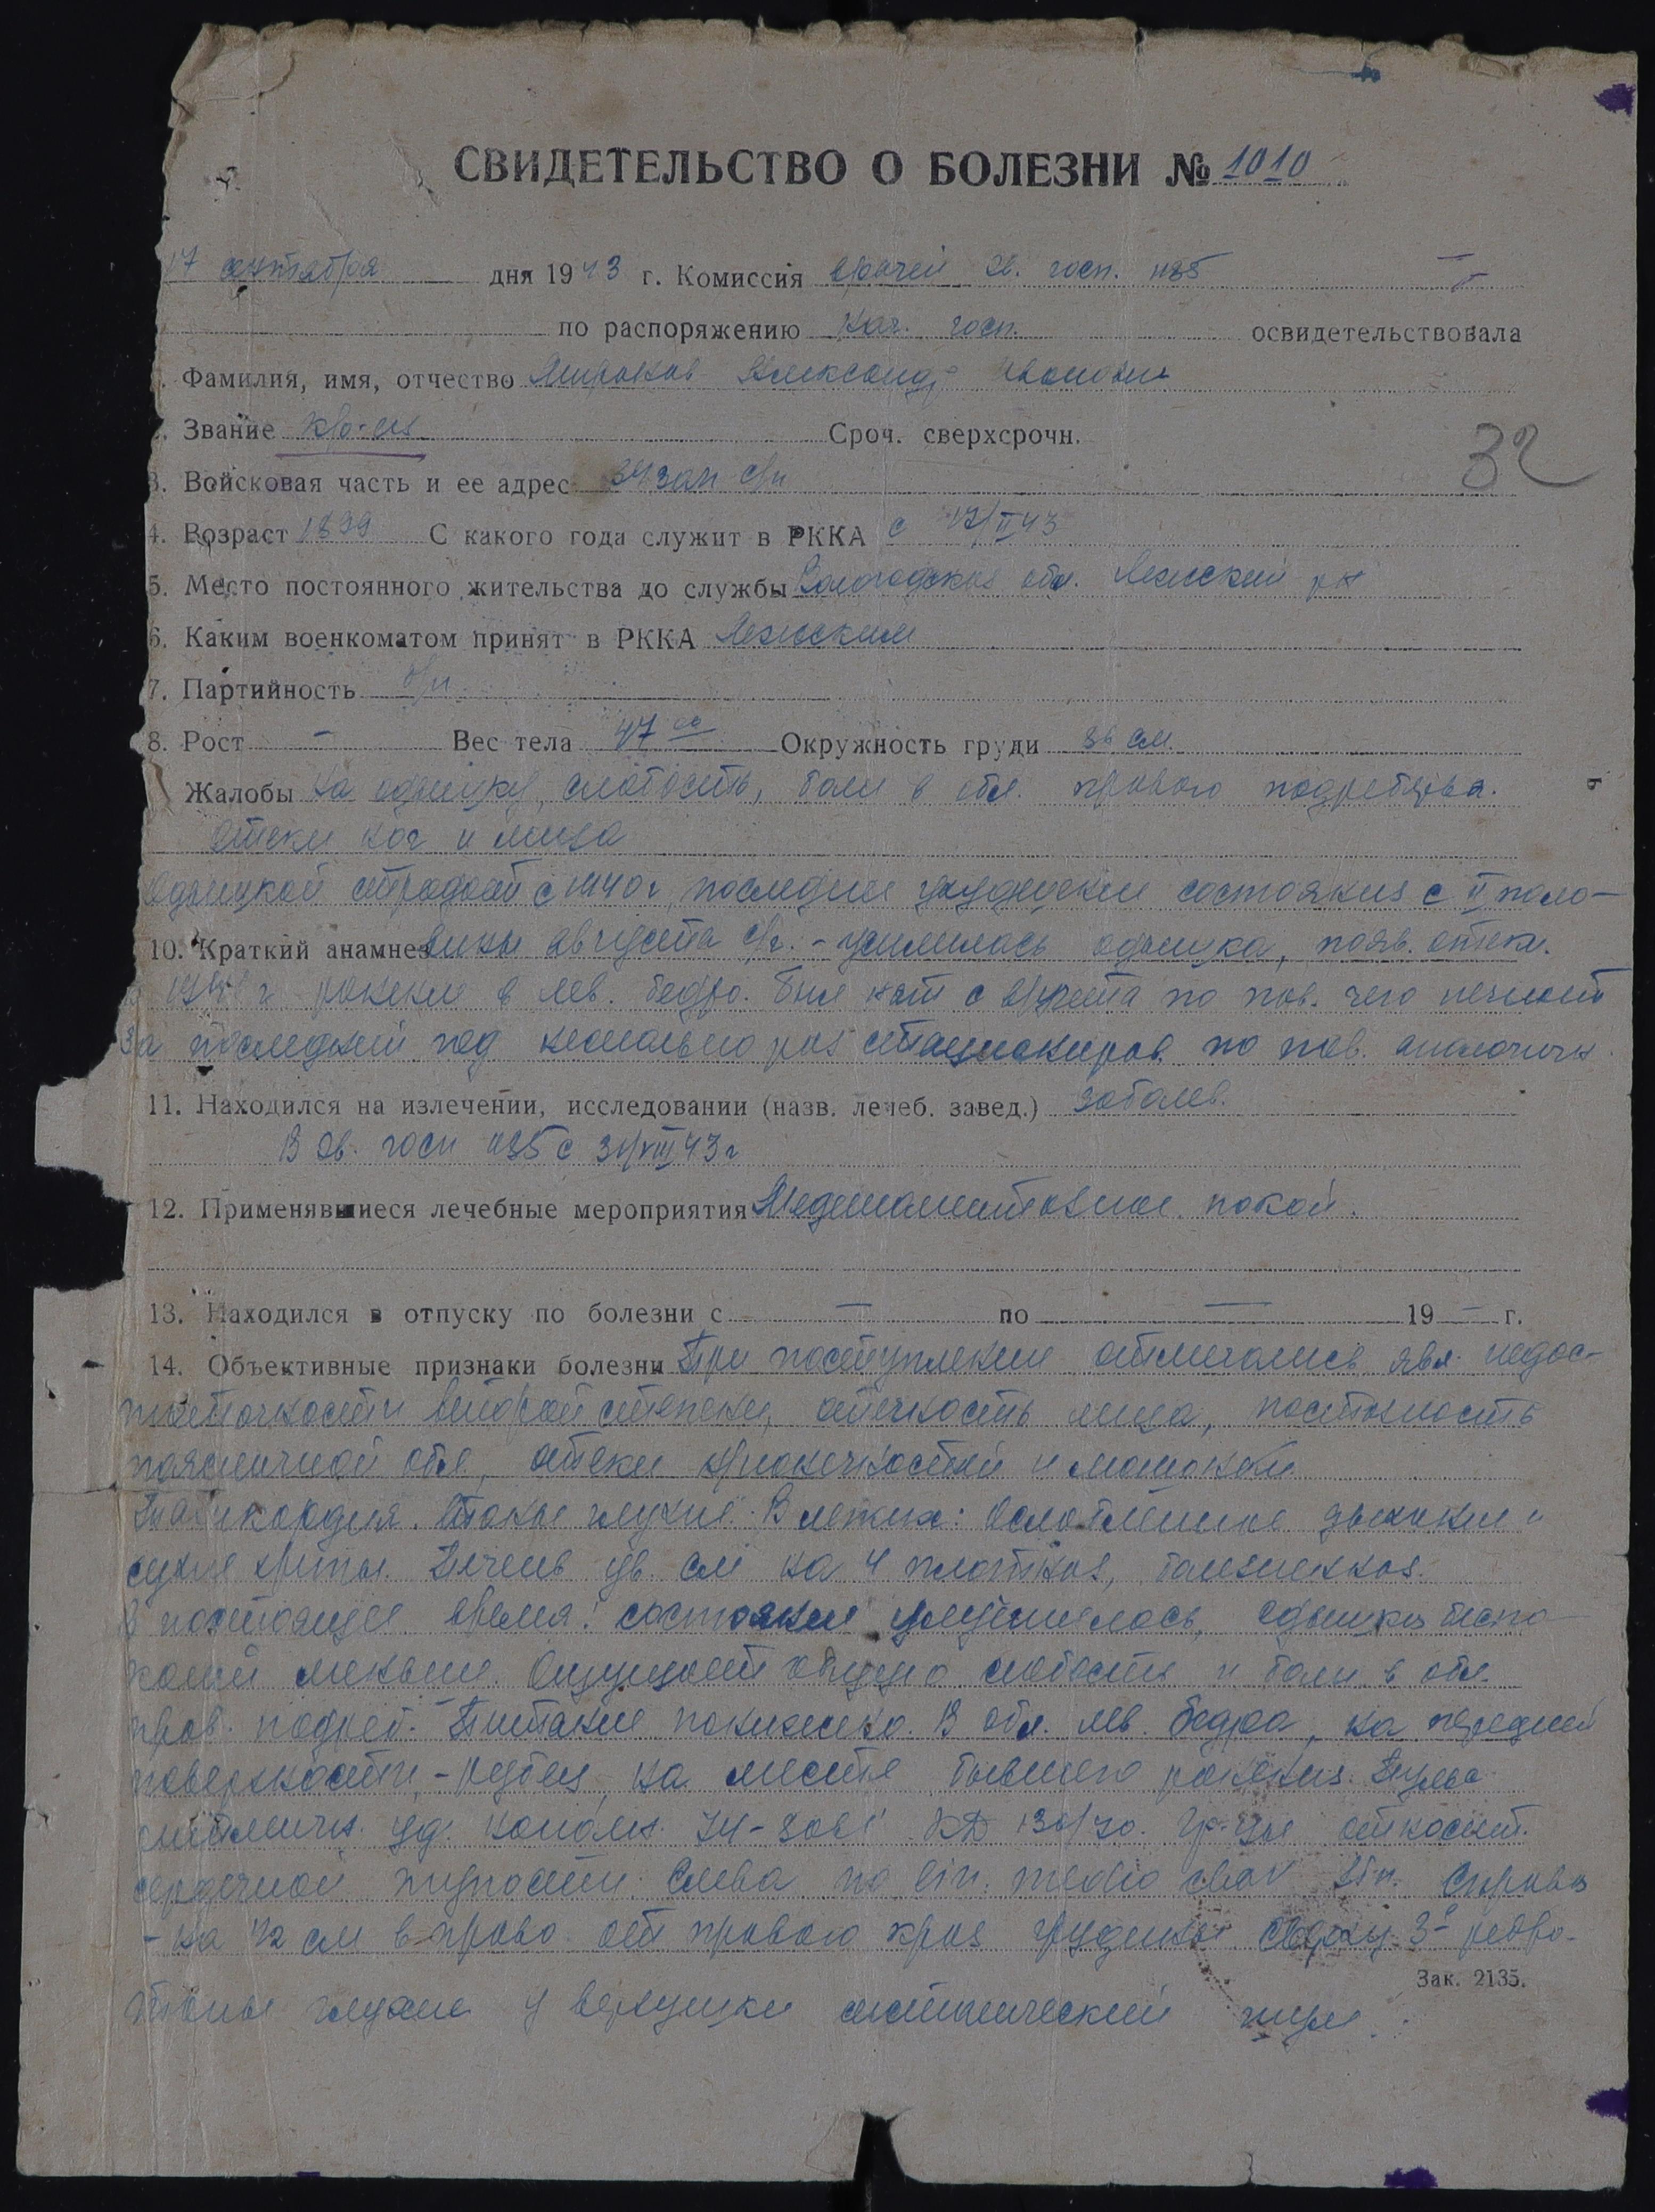 СВИДЕТЕЛЬСТВО О БОЛЕЗНИ № 1010
17 сентября дня 1943 г. Комиссия врачей Эв. госп. 1185
по распоряжению нач. госп. освидетельствовала
Фамилия, имя, отчество Александр Иванович
Звание кр-ец Сроч. сверхсрочн.
32
3. Войсковая часть и ее адрес 34 зап с/п
4. Возраст 1899 С какого года служит в РККА с 17/II 43
5. Место постоянного жительства до службы Вологодская обл. Лежский р-н
6. Каким военкоматом принят в РККА Лежским
7. Партийность б/п
8. Рост — Вес тела 47 00 Окружность груди 86 см.
Жалобы на одышку, слабость, боли в обл. правого подреберья.
Отеки ног и лица
Одышкой страдает с 1940 г, последнее ухудшение состояния с II поло-
10. Краткий анамнез вины августа с/г. - усилилась одышка, появ. отеки.
г ранение в лев. бедро. Был снят с по пов. чего
За последний год несколько раз стационировал. по пов. аналогичн.
11. Находился на излечении, исследовании (назв. лечеб. завед.) заболев.
В Эв. госп 1185 с 31/VIII 43 г
12. Применявшиеся лечебные мероприятия Медикаментозное. покой.
13. Находился в отпуску по болезни с — по — 19 — г.
14. Объективные признаки болезни При поступлении отмечались явл. недос-
таточности второй степени, отечность лица, пастозность
поясничной обл., отеки конечностей и мошонки.
Тахикардия. Тоны глухие. В легких: Ослабленное дыхание и
сухие хрипы. Печень ув. см на 4 плотная, болезненная.
В настоящее время: состояние улучшилось, одышка беспо-
коит меньше. Ощущает общую слабость и боли в обл.
прав. подреб. Питание понижено. В обл. лев. бедра, на передней
поверхности, - рубец на месте бывшего ранения. Пульс
ритмичн. уд. наполн. 74-80в1' КД 130/70. Гр-цы относит.
сердечной тупости: Слева по lin. medio clav sin. Справа
- на 1/2 см вправо от правого края грудины Сверху 3е ребро.
Зак. 2135.
Тоны глухие у верхушки систолический шум.